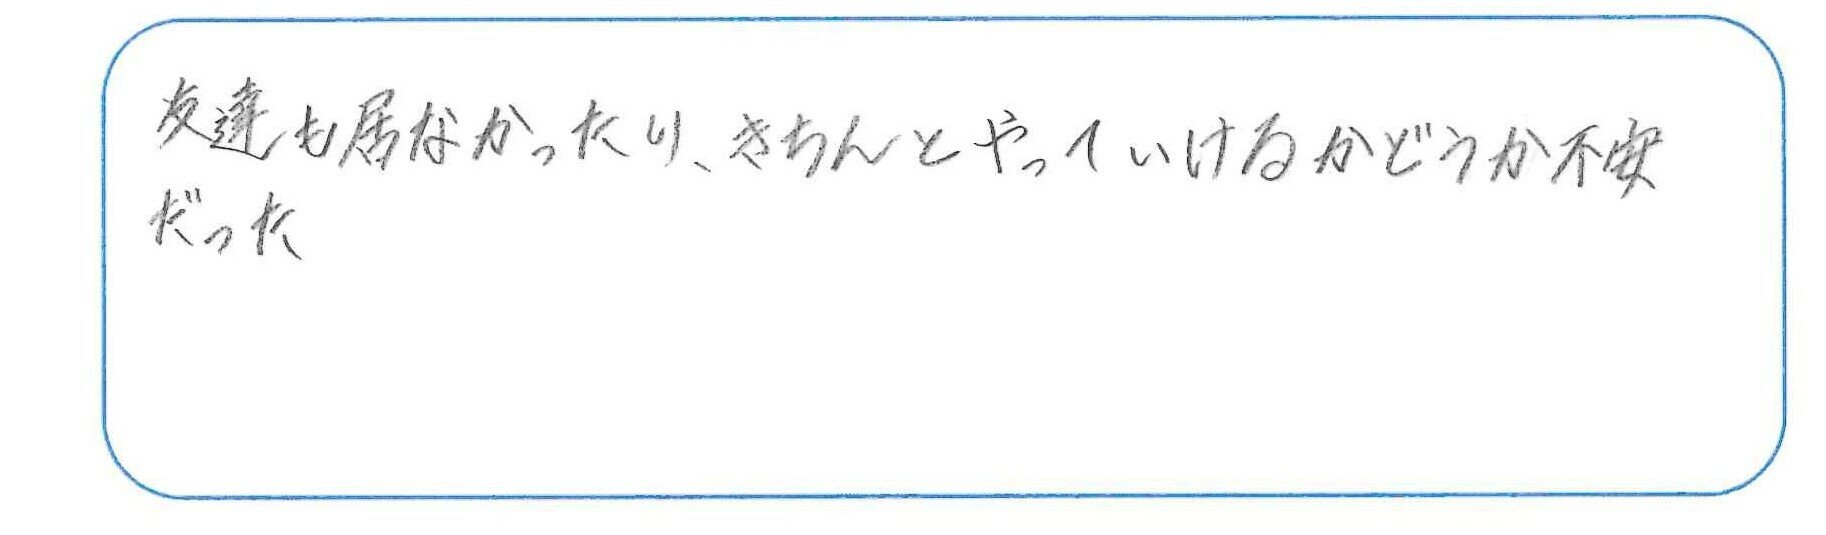 友達も居なかったり、きちんとやっていけるかどうか不安
だった